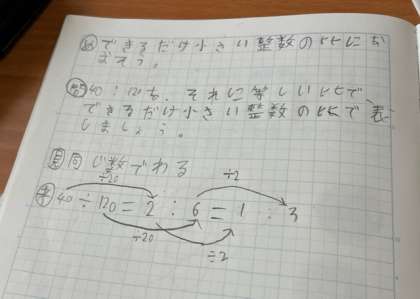 めできるだけ小さい整数の比にな
おそう。
問40:120を、それに等しい比で、
できるだけ小さい整数の比で表
しましょう。
見同じ数でわる
÷20 ÷2
考40÷120=2:6=1:3
÷20 ÷2